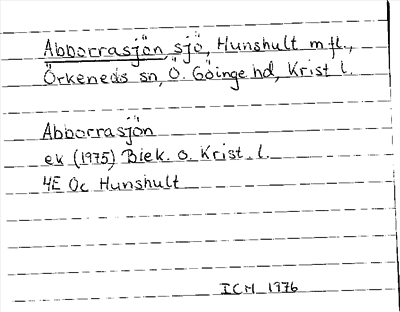 Abborrasjön, sjö, Hunshult m fl.,
Örkeneds sn, Ö. Göinge hd, Krist l.
Abborrasjön
ek (1975) Blek. o. Krist. l.
4E 0c Hunshult
ICM 1976